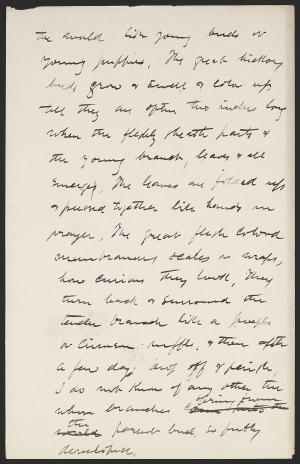 the world like young birds or
young puppies. The great hickory
buds grow & swell & color up
till they are often two inches long
when the fleshy sheath parts &
the young branch, leaves & all
emerges. The leaves are folded up
& pressed together like hands in
prayer. The great flesh colored
membraneous scales or wraps,
how curious they look, They
turn back & surround the
tender branch like a purple
or crimson ruffle, & then after
a few days drop off & perish.
I do not think of any other tree
whose branches spring from
the parent bud so fully
developed.